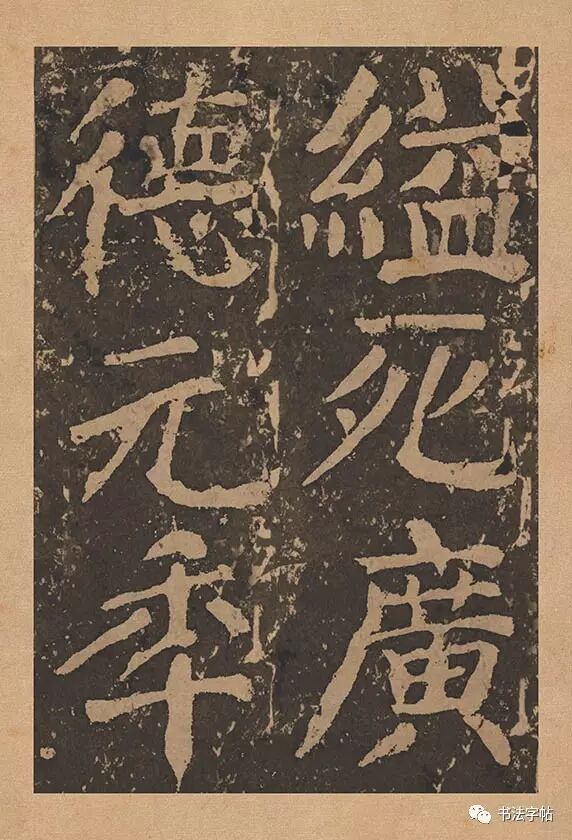 縊死廣
德元年
书法字帖